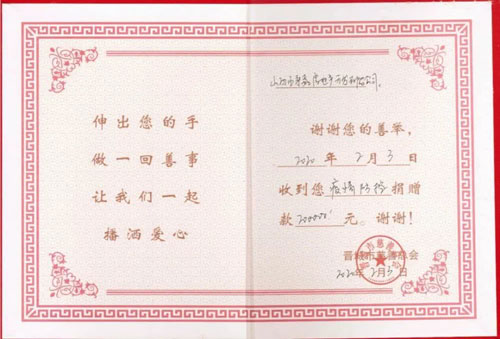 伸出您的手
做一回善事
让我们一起
播洒爱心
房地产开发有限公司
谢谢您的善举,
2020年2月3日
收到您疫情防控捐赠
款200000元。谢谢!
晋城市慈善总会
2020年2月3日